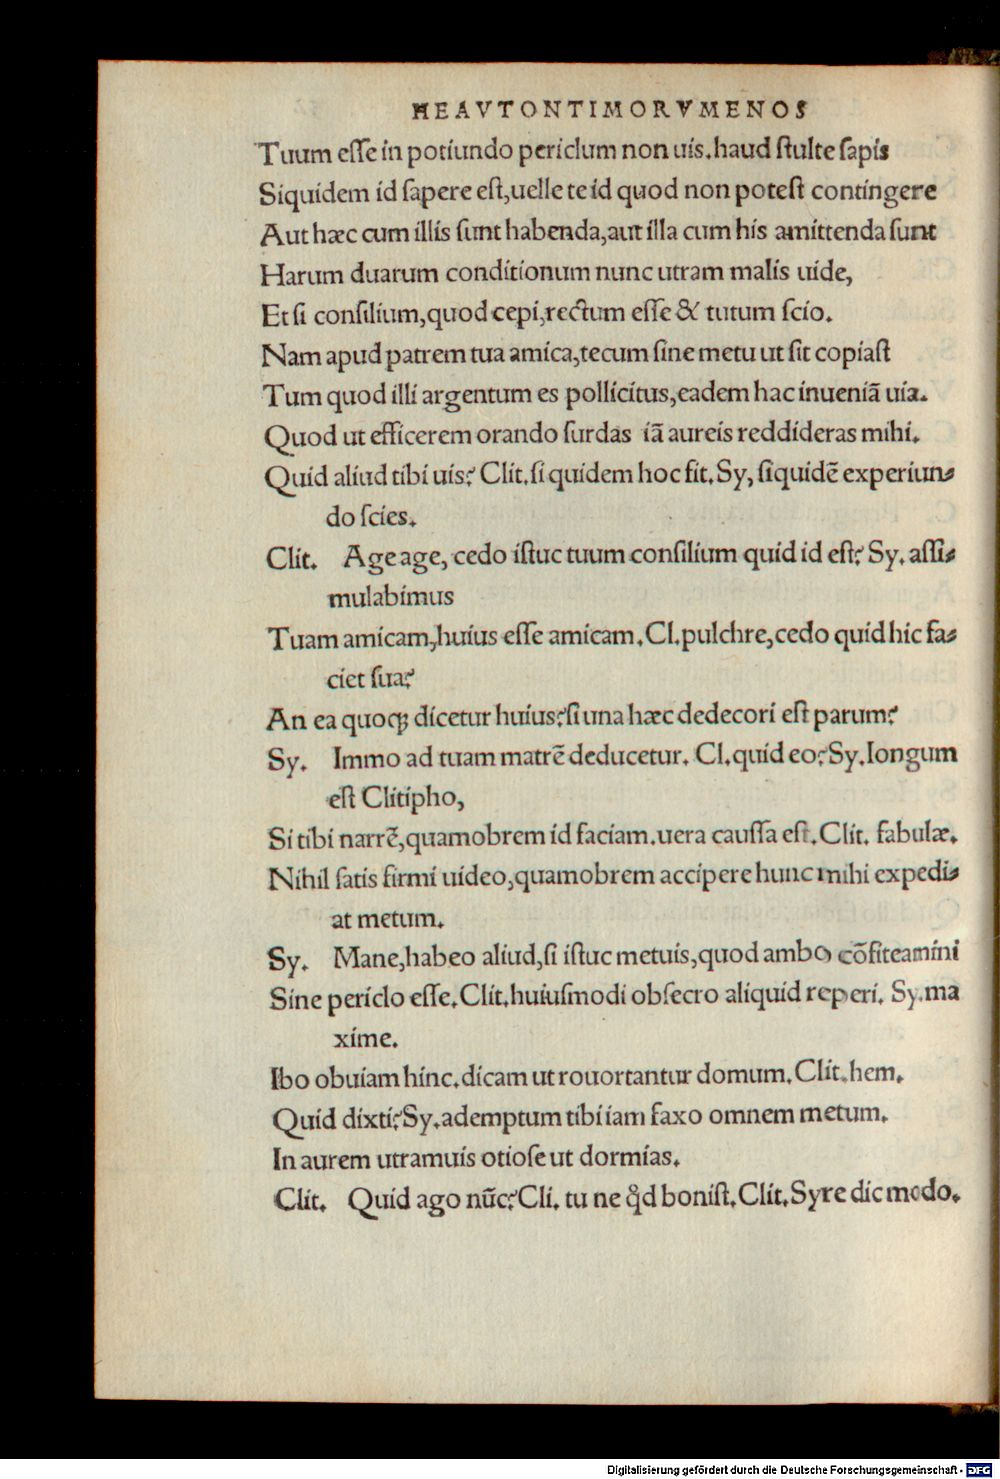 HEAVTONTIMORVMENOS
Tuum eſſe in potiundo periclum non uis.haud ſtulte ſapis
Siquidem id ſapere eſt,uelle te id quod non poteſt contingere
Aut hæc cum illis ſunt habenda,aut illa cum his amittenda ſunt
Harum duarum conditionum nunc utram malis uide,
Et ſi conſilium,quod cepi,rectum eſſe & tutum ſcio.
Nam apud patrem tua amica,tecum ſine metu ut ſit copiaſt
Tum quod illi argentum es pollicitus,eadem hac inueniā uia.
Quod ut efficerem orando ſurdas iā aureis reddideras mihi.
Quid aliud tibi uis? Clit.ſi quidem hoc fit.Sy, ſiquidē experiun-
do ſcies.
Clit. Age age, cedo iſtuc tuum conſilium quid id eſt? Sy. aſſi-
mulabimus
Tuam amicam,huius eſſe amicam.Cl.pulchre,cedo quid hic fa-
ciet ſua?
An ea quoqꝫ dicetur huius?ſi una hæc dedecori eſt parum?
Sy. Immo ad tuam matrē deducetur. Cl.quid eo?Sy.longum
eſt Clitipho,
Si tibi narrē,quamobrem id faciam.uera cauſſa eſt.Clit. fabulæ.
Nihil ſatis firmi uideo,quamobrem accipere hunc mihi expedi-
at metum.
Sy. Mane,habeo aliud,ſi iſtuc metuis,quod ambo cōfiteamini
Sine periclo eſſe.Clit.huiuſmodi obſecro aliquid reperi. Sy.ma
xime.
Ibo obuiam hinc.dicam ut rouortantur domum.Clit.hem.
Quid dixti?Sy.ademptum tibi iam faxo omnem metum.
In aurem utramuis otioſe ut dormias.
Clit. Quid ago nūc?Cli. tu ne qͥd boniſt.Clit.Syre dic modo.
Digitalisierung gefördert durch die Deutsche Forschungsgemeinschaft - DFG